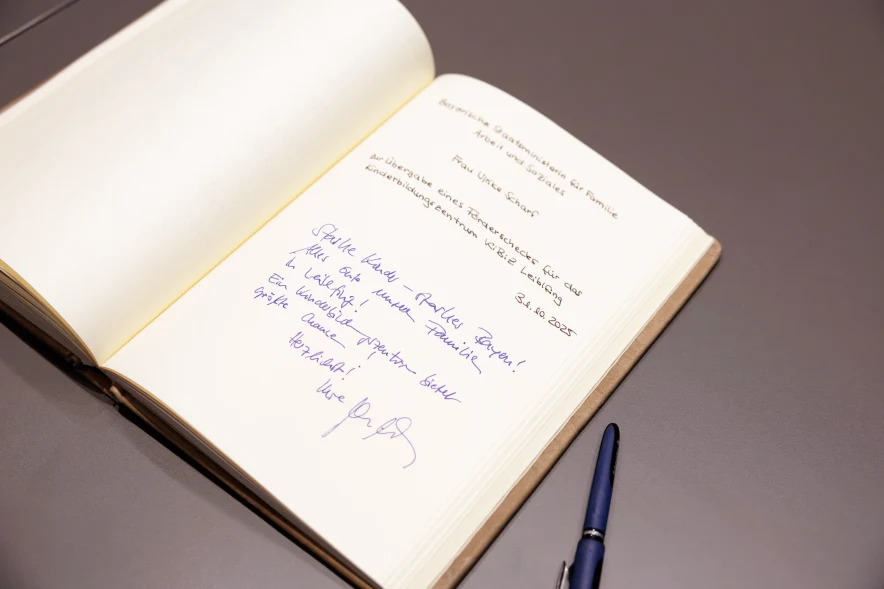 Bayerische Staatsministerin für Familie
Arbeit und Soziales
Frau Ulrike Scharf
zur Übergabe eines Förderschecks für das
Kinderbildungszentrum KiBiZ Leiblfing
31.10.2025
Starke Kinder – starkes Bayern!
Alles Gute unseren Familien
in Leiblfing!
Ein Kinderbildungszentrum bietet
größte Chancen!
Herzlichst!
Ihre